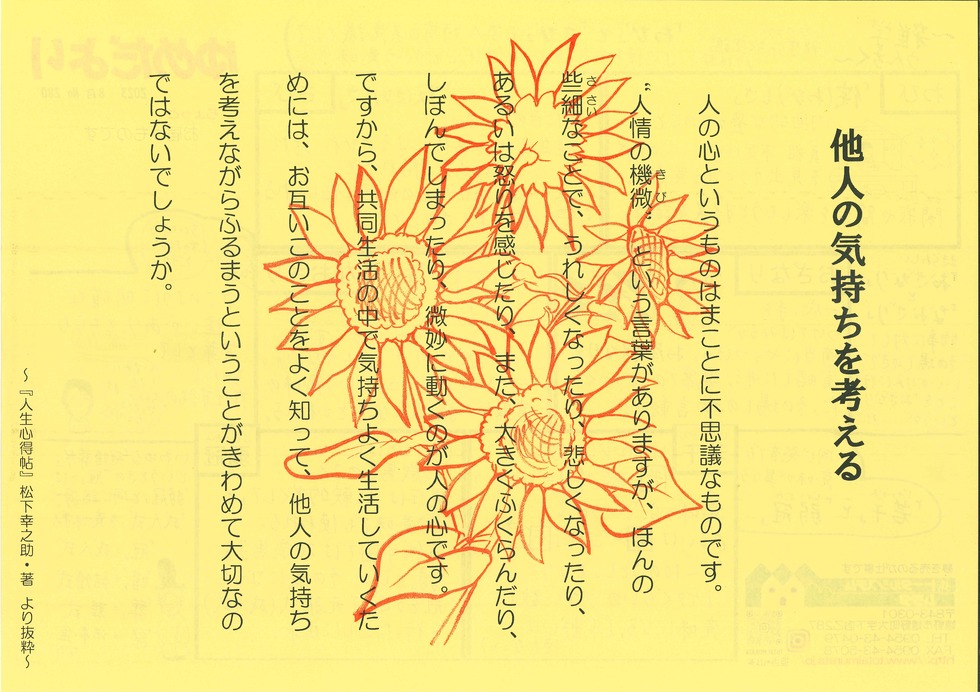 他人の気持ちを考える
人の心というものはまことに不思議なものです。
“人情の機微”という言葉がありますが、ほんの
きび
些細なことで、うれしくなったり、悲しくなったり、
ささい
あるいは怒りを感じたり、また、大きくふくらんだり、
しぼんでしまったり、微妙に動くのが人の心です。
ですから、共同生活の中で気持ちよく生活していくた
めには、お互いこのことをよく知って、他人の気持ち
を考えながらふるまうということがきわめて大切なの
ではないでしょうか。
～『人生心得帖』松下幸之助・著 より抜粋～